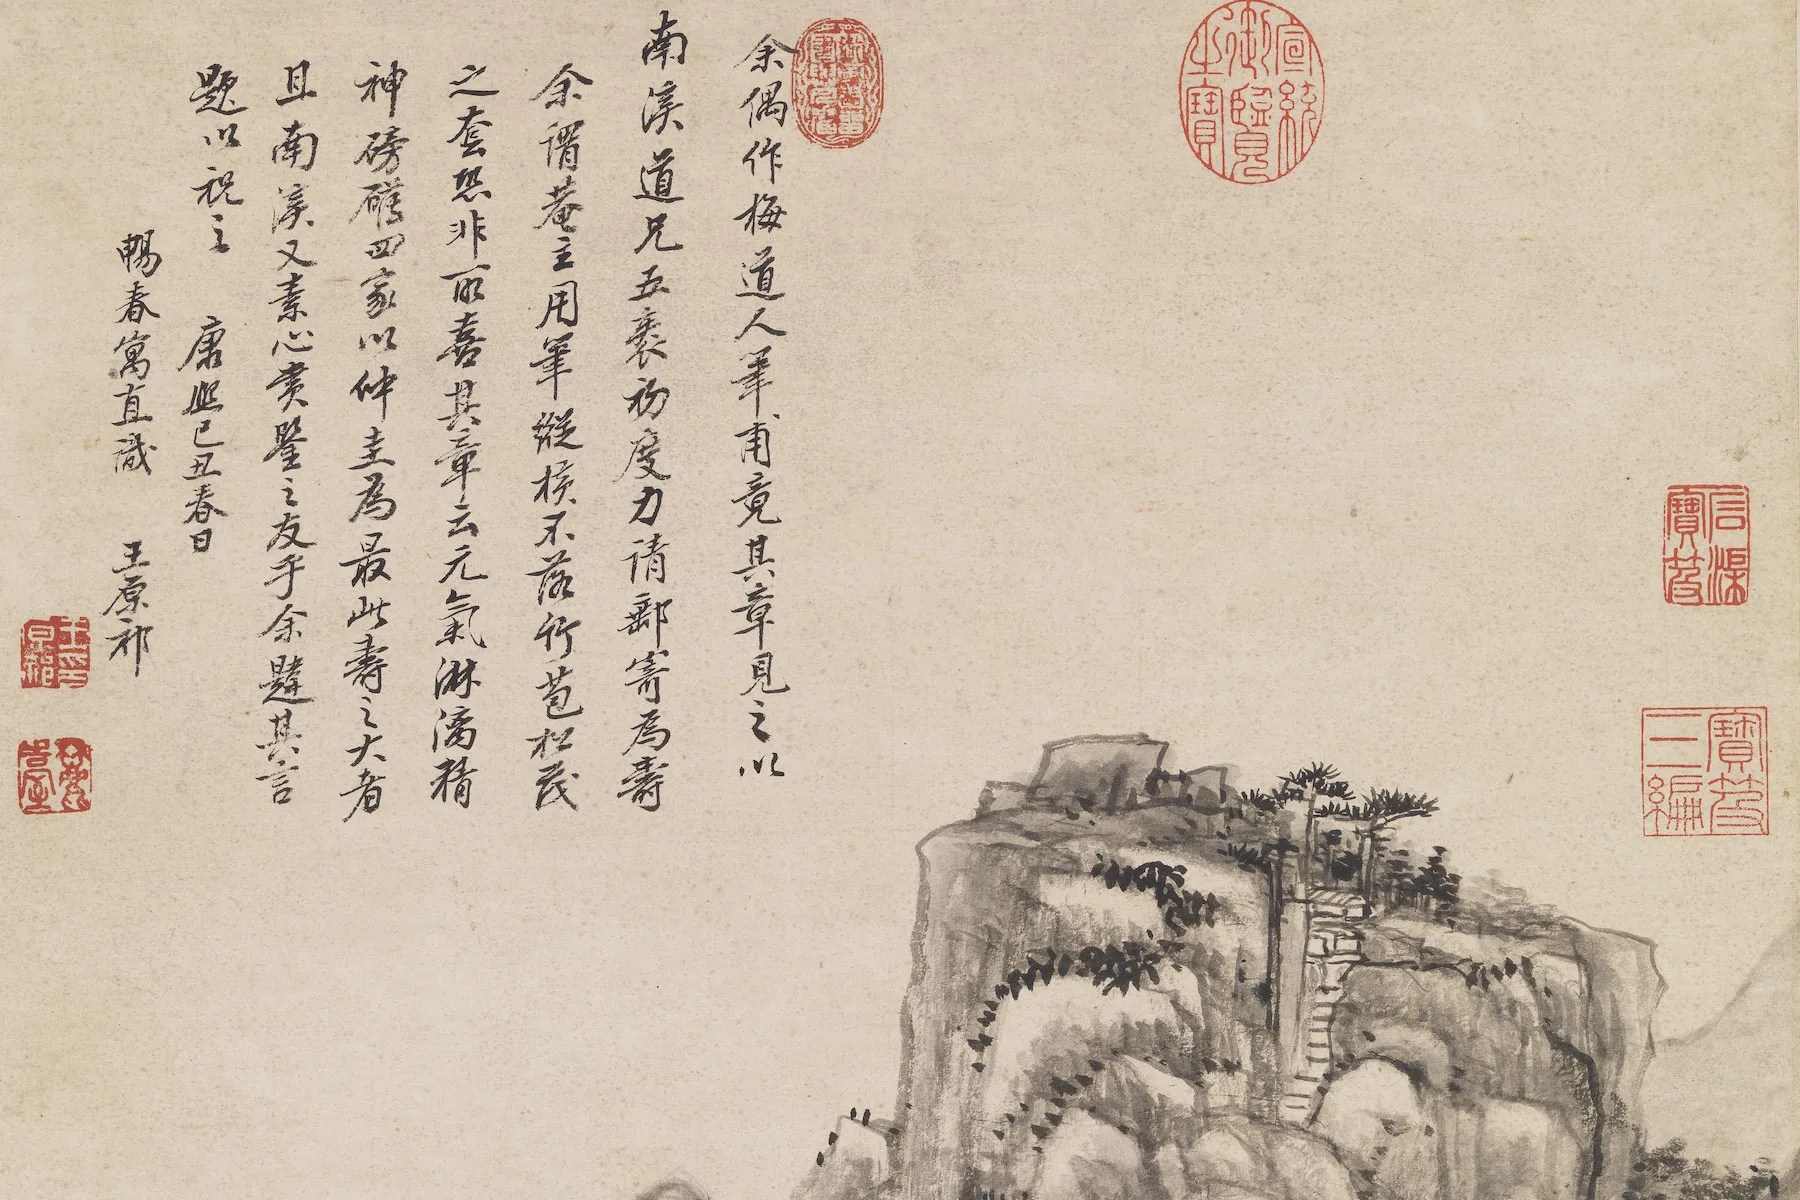 余偶作梅道人筆甫竟其章見之以
南溪道兄五袠初度力请郵寄為壽
余謂菴主用筆縱橫不落竹苞松茂
之套恐非所喜其章云元氣淋漓精
神磅礴四家以仲圭為最此壽之大者
且南溪又素心賞鑒之友乎余韙其言
题以祝之 康熙己丑春日
暢春寓直識 王原祁
宣統御覽之寶
石渠寶笈
寶笈三編